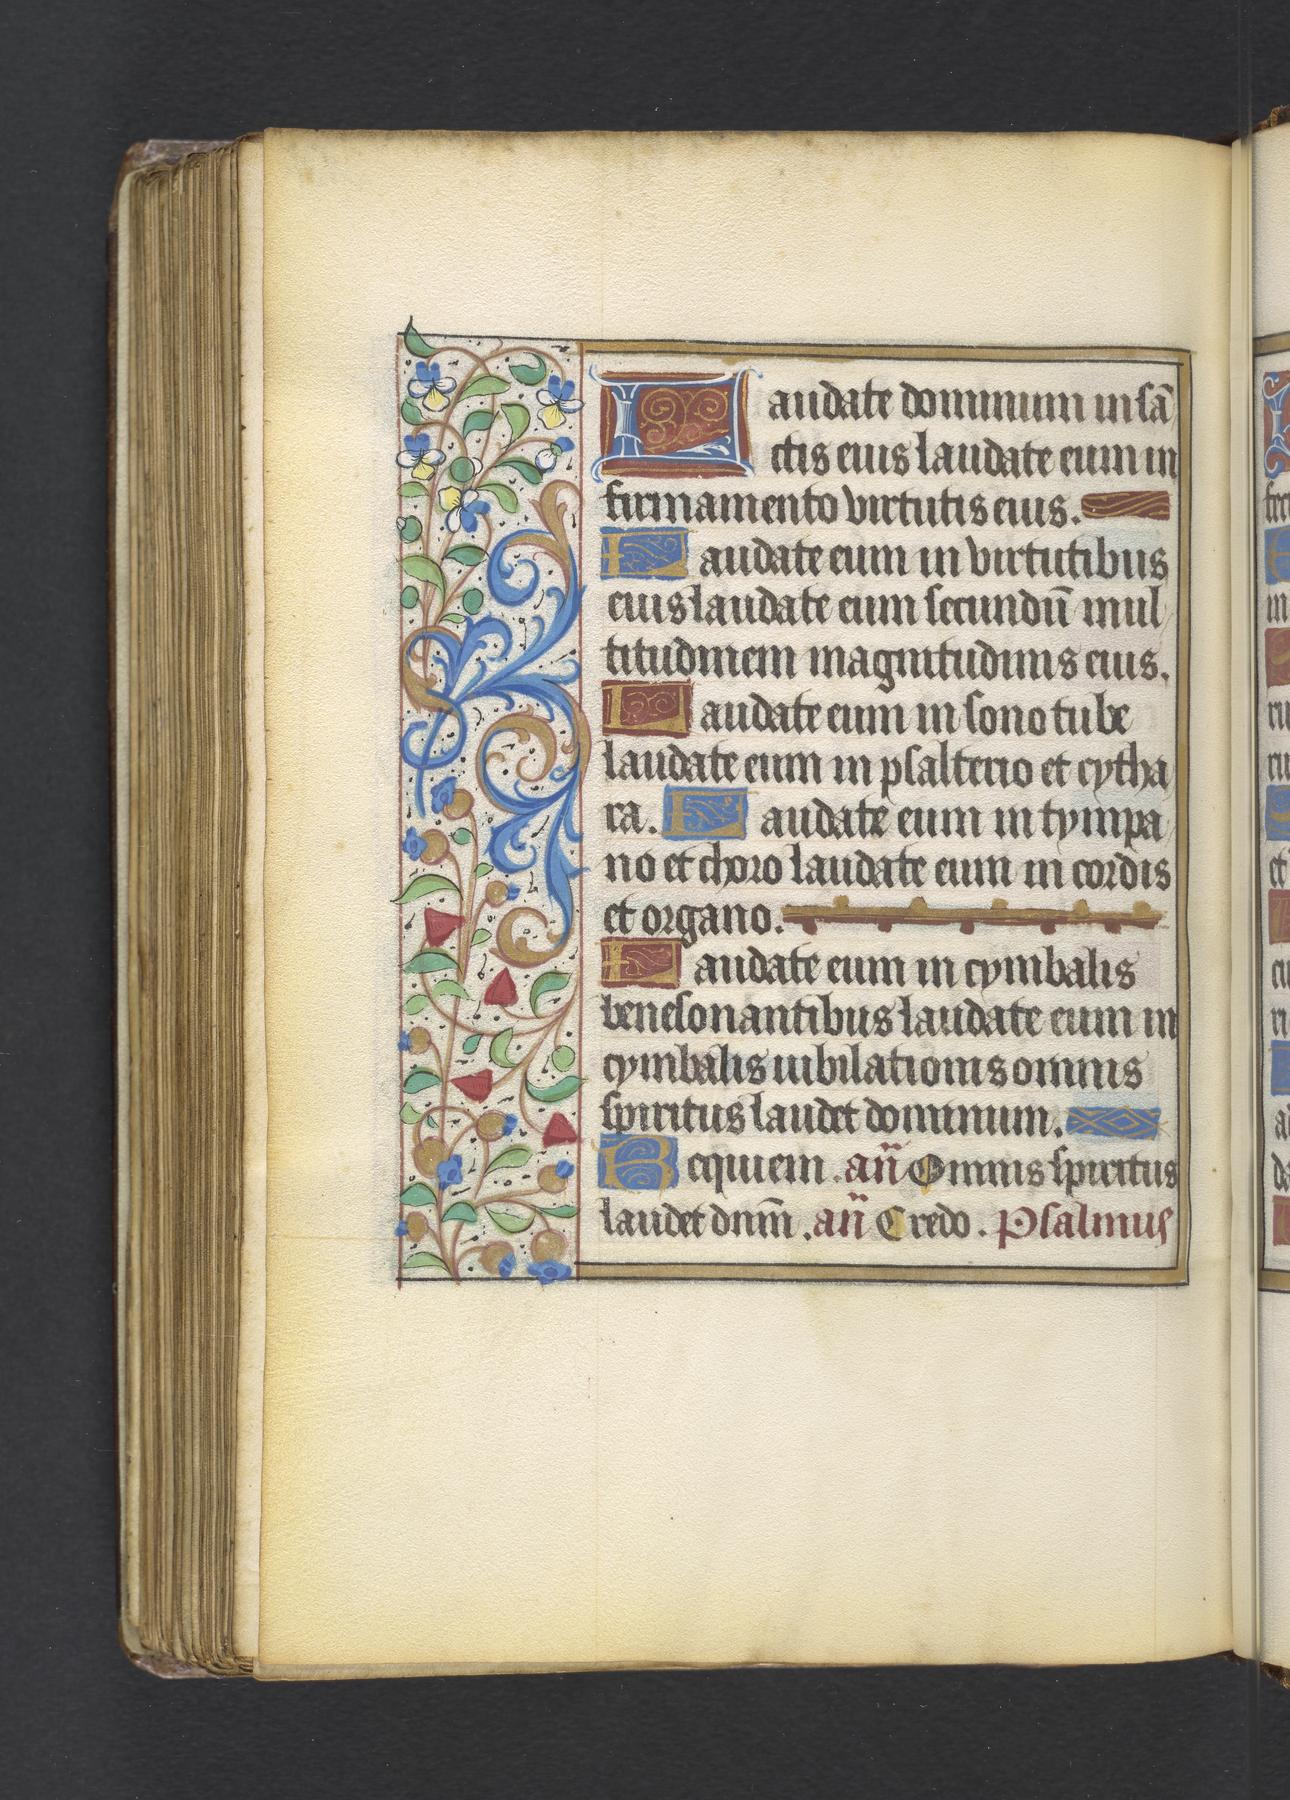 Laudate dominum in sā
ctis eius laudate eum in
firmamento virtutis eius.
Laudate eum in virtutibus
eius laudate eum secundū mul
titudinem magnitudinis eius.
Laudate eum in sono tube
laudate eum in psalterio et cytha
ra. Laudate eum in tympa
no et choro laudate eum in cordis
et organo.
Laudate eum in cymbalis
benesonantibus laudate eum in
cymbalis iubilationis omnis
spiritus laudet dominum.
Requiem. añ Omnis spiritus
laudet dnm̄. añ Credo. Psalmus